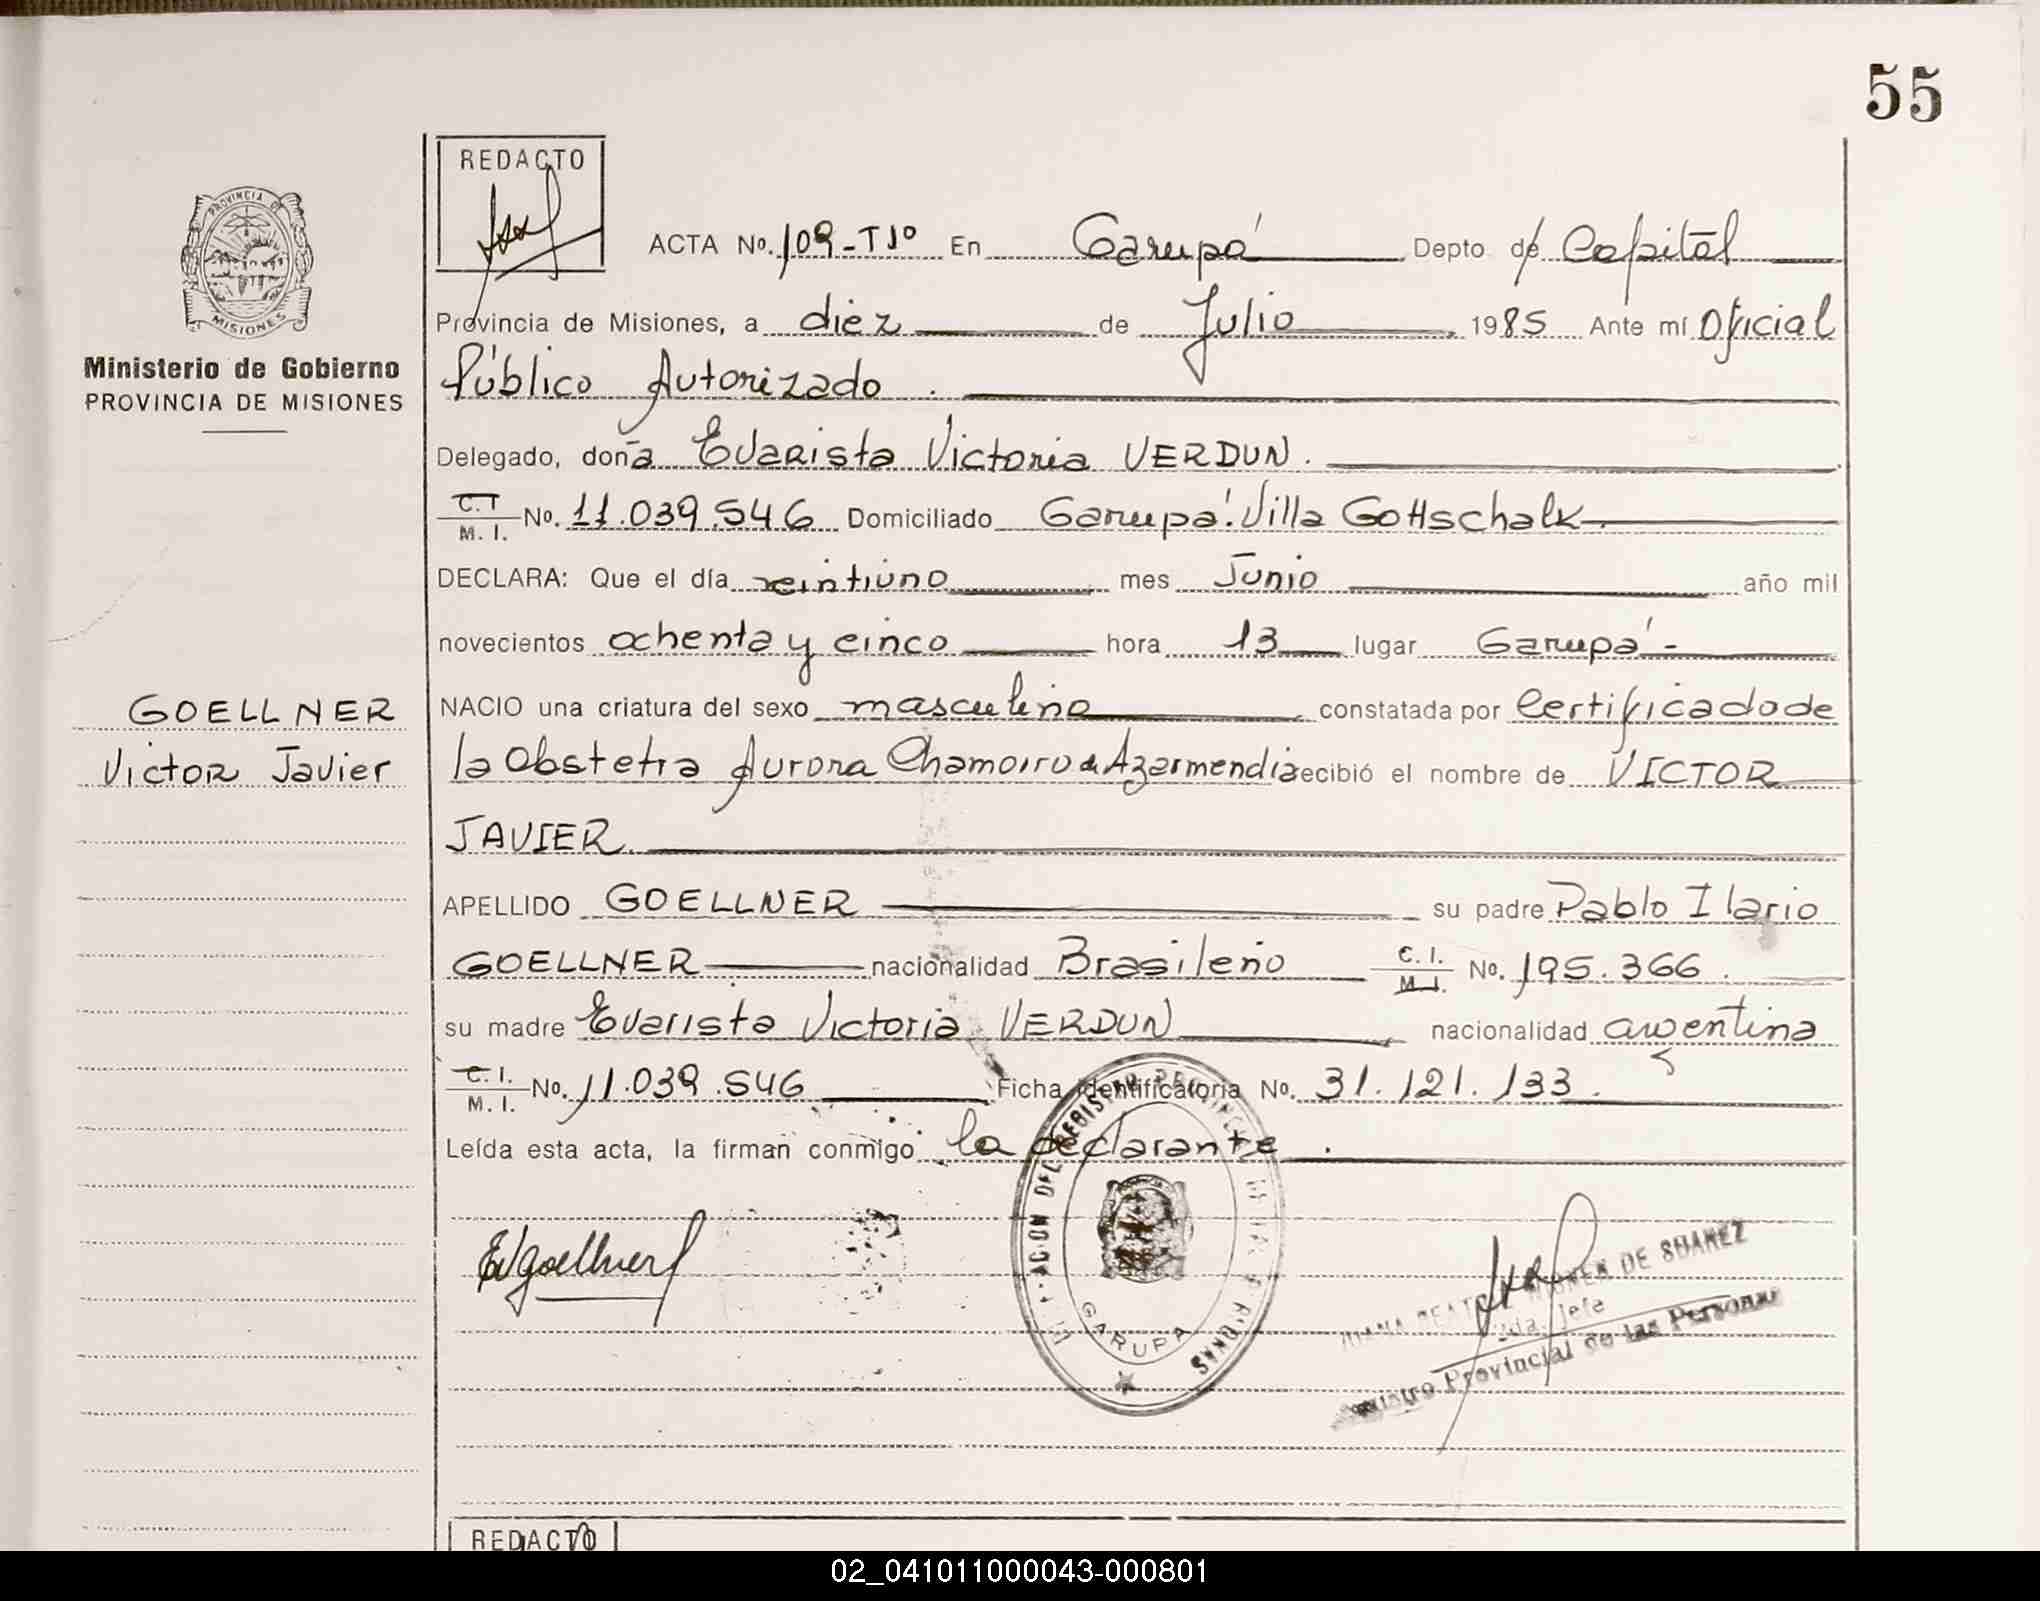 55
REDACTO
PROVINCIA DE
MISIONES
Ministerio de Gobierno
PROVINCIA DE MISIONES
ACTA No. 109-Tlº En Garupá Depto de Capital
Provincia de Misiones, a diez de Julio 1985 Ante mí Oficial
Público Autorizado.
Delegado, doña Evarista Victoria VERDUN.
C.I M. I. No. 11.039.546 Domiciliado Garupá. Villa Gottschalk.
DECLARA: Que el día veintiuno mes Junio año mil
novecientos ochenta y cinco hora 13 lugar Garupá-
GOELLNER
NACIO una criatura del sexo masculino constatada por Certificado de
Victor Javier
la Obstetra Aurora Chamorro de Azarmendia recibió el nombre de VICTOR
JAVIER.
APELLIDO GOELLNER su padre Pablo Ilario
GOELLNER nacionalidad Brasileño C. I. M. I. No. 195.366.
su madre Evarista Victoria VERDUN nacionalidad argentina
C. I. M. I. No. 11.039.546 Ficha identificatoria No. 31.121.133.
Leída esta acta, la firman conmigo la declarante.
EVgoellner
GARUPA
DE SUAREZ
2da. Jefe
Provincial de las Personas
REDACTO
02_041011000043-000801